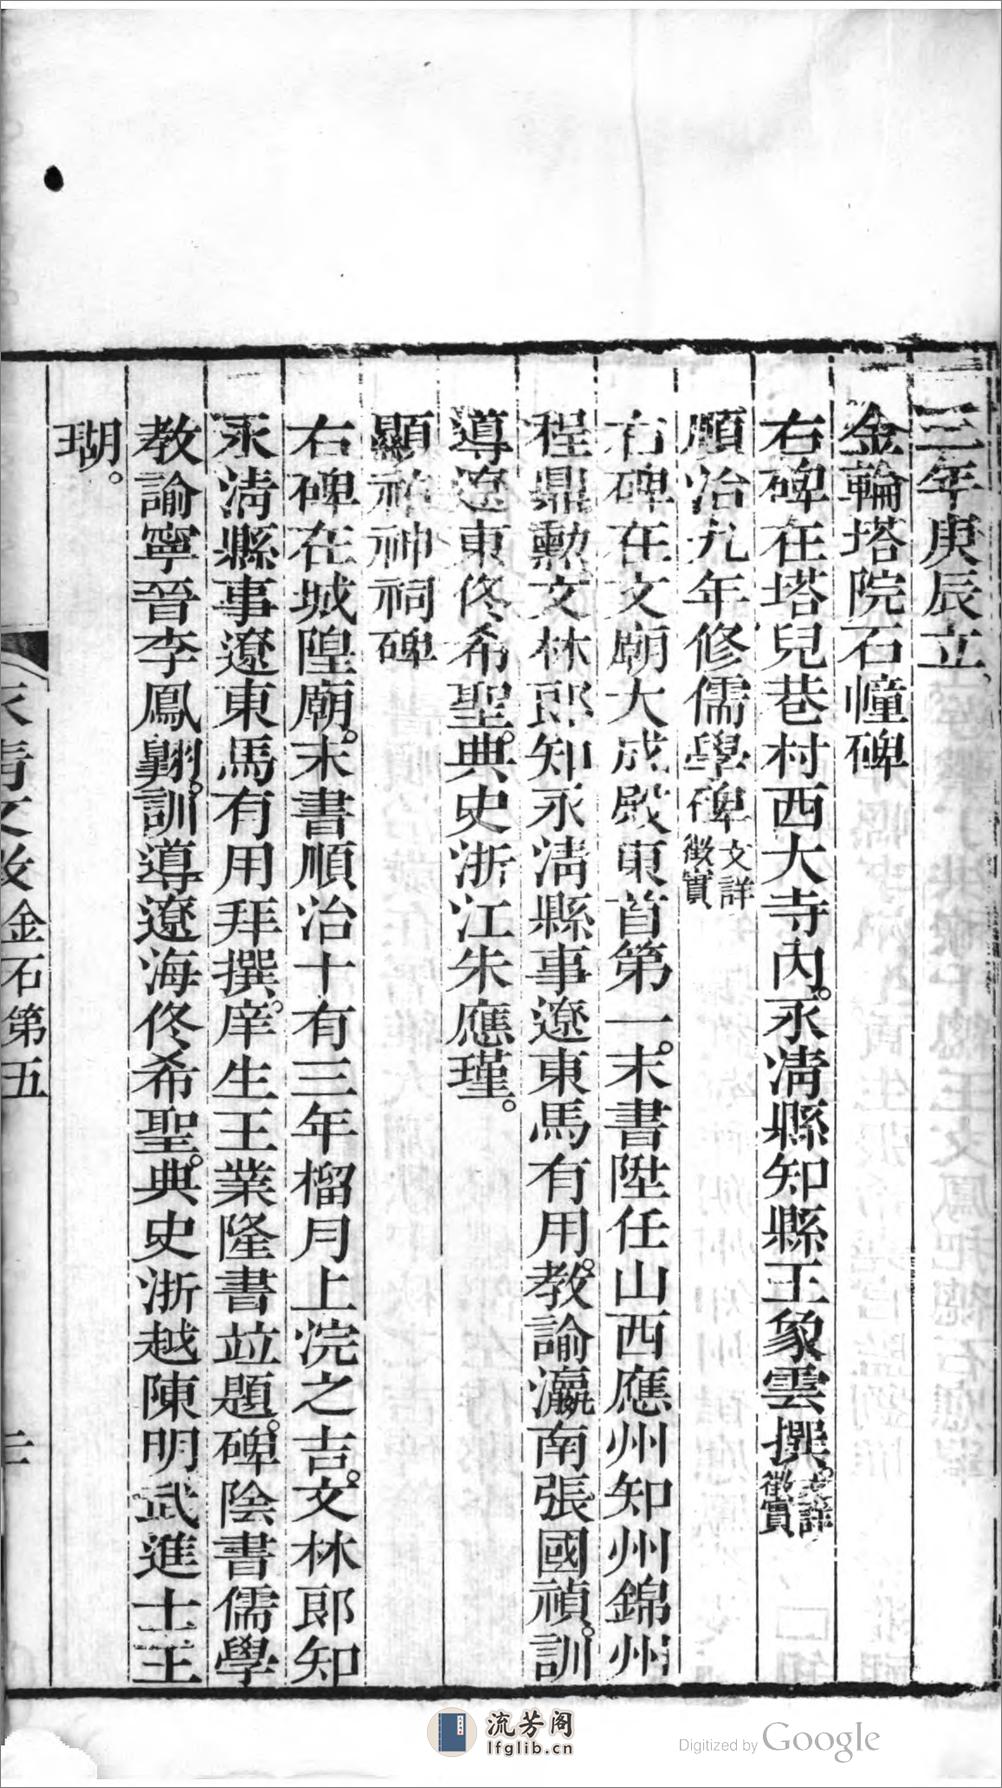 三年庚辰立。
金輪塔院石幢碑
右碑在塔兒巷村西大寺內。永淸縣知縣王象雲撰。文詳徵實
順治九年修儒學碑文詳徵實
右碑在文廟大成殿東首第一。末書陞任山西應州知州錦州
程鼎勳文林郎知永淸縣事遼東馬有用。教諭瀛南張國禎。訓
導遼東佟希聖。典史浙江朱應瑾。
顯祐神祠碑
右碑在城隍廟。末書順治十有三年榴月上浣之吉。文林郎知
永淸縣事遼東馬有用拜撰。庠生王業隆書竝題。碑陰書儒學
教諭寧晉李鳳翺。訓導遼海佟希聖。典史浙越陳明。武進士王
瑚。
永清文徵 金石第五
流芳阁
lfglib.cn
Digitized by Google